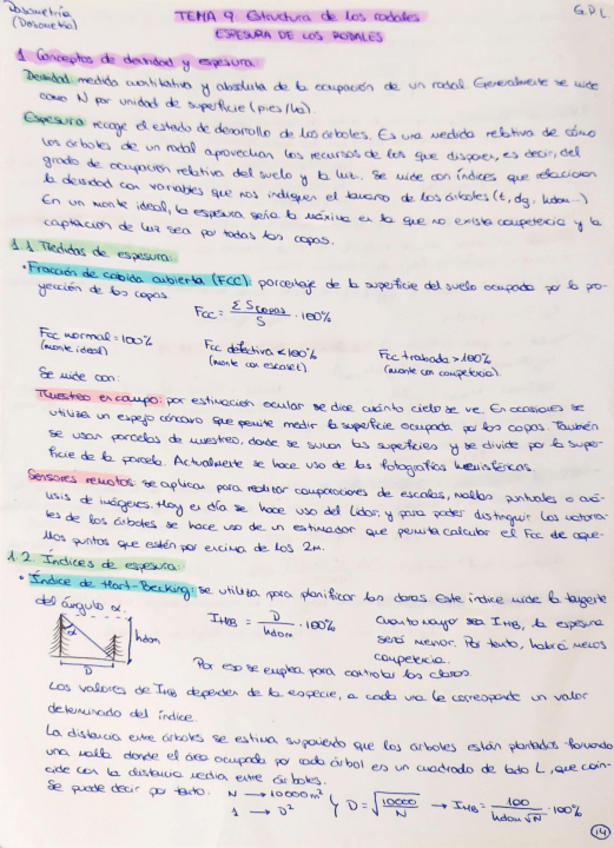 Dasometría
(Dasometría)
G.D.L
TEMA 9. Estructura de los rodales
ESPESURA DE LOS RODALES
1. Conceptos de densidad y espesura.
Densidad: medida cuantitativa y absoluta de la ocupación de un rodal. Generalmente se mide
como N por unidad de superficie (pies/ha).
Espesura: recoge el estado de desarrollo de los árboles. Es una medida relativa de cómo
los árboles de un rodal aprovechan los recursos de los que disponen, es decir, del
grado de ocupación relativa del suelo y la luz. Se mide con índices que relacionan
la densidad con variables que nos indiquen el tamaño de los árboles (t, dg, hdom...)
En un monte ideal, la espesura sería la máxima en la que no exista competencia y la
captación de luz sea por todas las copas.
1.1. Medidas de espesura:
• Fracción de cabida cubierta (FCC): porcentaje de la superficie del suelo ocupada por la pro-
yección de las copas.
Fcc = Σ Scopas / S · 100%
Fcc normal = 100%
(monte ideal)
Fcc defectiva < 100%
(monte con escasez)
Fcc trabada > 100%
(monte con competencia)
Se mide con:
Muestreo en campo: por estimación ocular se dice cuánto cielo se ve. En ocasiones se
utiliza un espejo cóncavo que permite medir la superficie ocupada por las copas. También
se usan parcelas de muestreo, donde se suman las superficies y se divide por la super-
ficie de la parcela. Actualmente se hace uso de las fotografías hemisféricas.
Sensores remotos: se aplican para realizar comparaciones de escalas, mallas puntuales o aná-
lisis de imágenes. Hoy en día se hace uso del Lidar, y para poder distinguir los matorra-
les de los árboles se hace uso de un estimador que permita calcular el Fcc de aque-
llos puntos que estén por encima de los 2m.
1.2. Índices de espesura:
• Índice de Hart-Becking: se utiliza para planificar las claras. Este índice mide la tangente
del ángulo α.
α
hdom
D
IHB = D / hdom · 100%
Cuanto mayor sea IHB, la espesura
será menor. Por tanto, habrá menos
competencia.
Por eso se emplea para controlar las claras.
Los valores de IHB dependen de la especie, a cada una le corresponde un valor
determinado del índice.
La distancia entre árboles se estima suponiendo que los árboles están plantados formando
una malla donde el área ocupada por cada árbol es un cuadrado de lado L, que coin-
cide con la distancia media entre árboles.
Se puede decir por tanto: N → 10000 m²
1 → D²
} D = √(10000 / N) → IHB = 100 / hdom √N · 100%
14